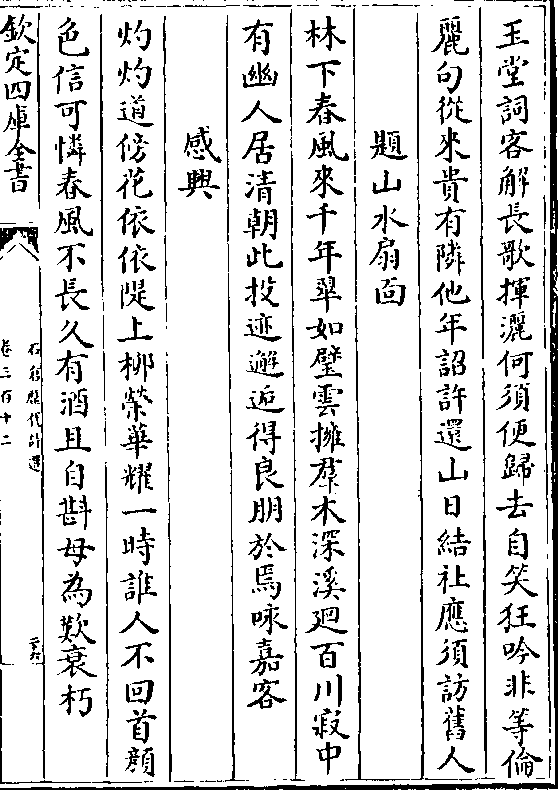 玉堂詞客解長歌揮灑何須便歸去自笑狂吟非等倫
麗句從來貴有隣他年詔許還山日結社應須訪舊人
題山水扇面
林下春風來千年翠如璧雲擁羣木深溪廻百川寂中
有幽人居清朝此投迹邂逅得良朋於焉咏嘉客
感興
灼灼道傍花依依隄上柳榮華耀一時誰人不回首顔
色信可憐春風不長久有酒且自斟毋為歎衰朽
欽定四庫全書
石倉歷代詩選
卷三百十二